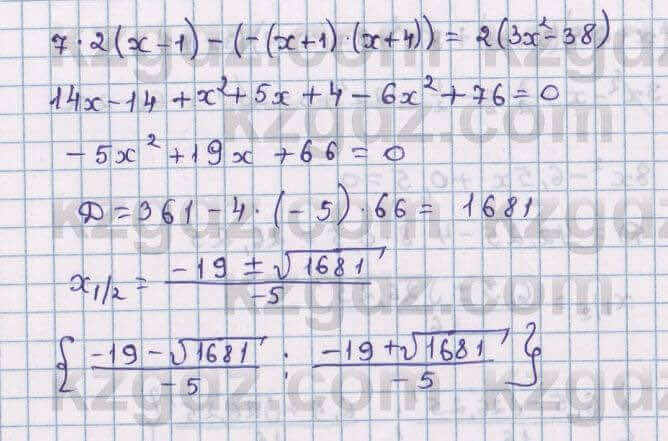 7·2(x-1)-(-(x+1)·(x+4))=2(3x²-38)
14x-14+x²+5x+4-6x²+76=0
-5x²+19x+66=0
Д=361-4·(-5)·66=1681
x₁/₂=(-19±√1681)/-5
{(-19-√1681)/-5; (-19+√1681)/-5}